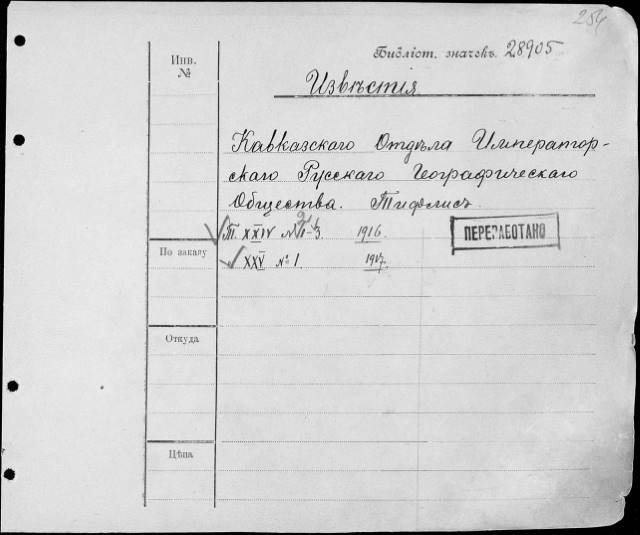 254
Инв.
№
Библіот. значекъ 28905
Извѣстія
Кавказскаго Отдѣла Император-
скаго Русскаго Географическаго
Общества. Тифлисъ.
Т. XXIV № 1-3. 1916.
ПЕРЕРАБОТАНО
По заказу
XXV № 1. 1917.
Откуда
Цѣна